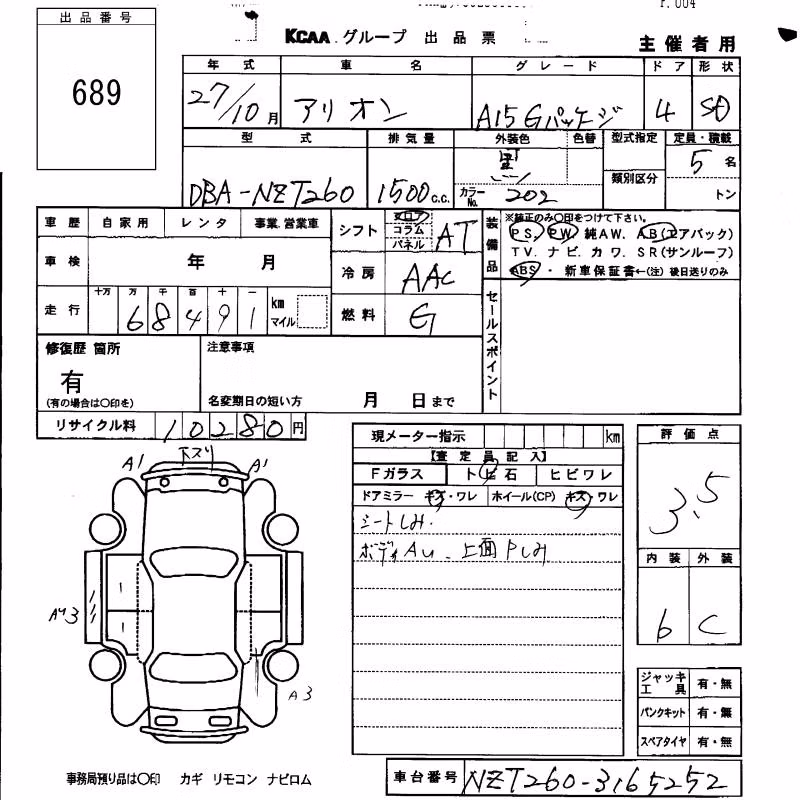 出品番号
689
KCAA グループ 出品票
主催者用
年式 車名 グレード ドア 形状
27/10月 アリオン A15 Gパッケージ 4 SD
型式 排気量 外装色 色替 型式指定 定員・積載
DBA-NZT260 1500c.c. 黒 類別区分 5名
カラーNo. 202 トン
車歴 自家用 レンタ 事業.営業車
シフト フロア コラム パネル AT
車検 年 月
冷房 AAC
走行 十万 万 千 百 十 一
68491 km マイル
燃料 G
装備品
※純正のみ○印をつけて下さい。
PS. PW. 純AW. AB(エアバック)
TV. ナビ. カワ. SR(サンルーフ)
ABS ・ 新車保証書←(注) 後日送りのみ
セールスポイント
修復歴 箇所
有
(有の場合は○印を)
注意事項
名変期日の短い方 月 日まで
リサイクル料 10280円
現メーター指示 km
【査定員記入】
Fガラス トビ石 ヒビワレ
ドアミラー キズ・ワレ ホイール(CP) キズ・ワレ
シートしみ.
ボディAU. 上面Pしみ
評価点
3.5
内装 外装
6 C
下スリ
A1 A1
A43
A3
ジャッキ工具 有・無
パンクキット 有・無
スペアタイヤ 有・無
事務局預り品は○印 カギ リモコン ナビロム
車台番号 NZT260-3165252